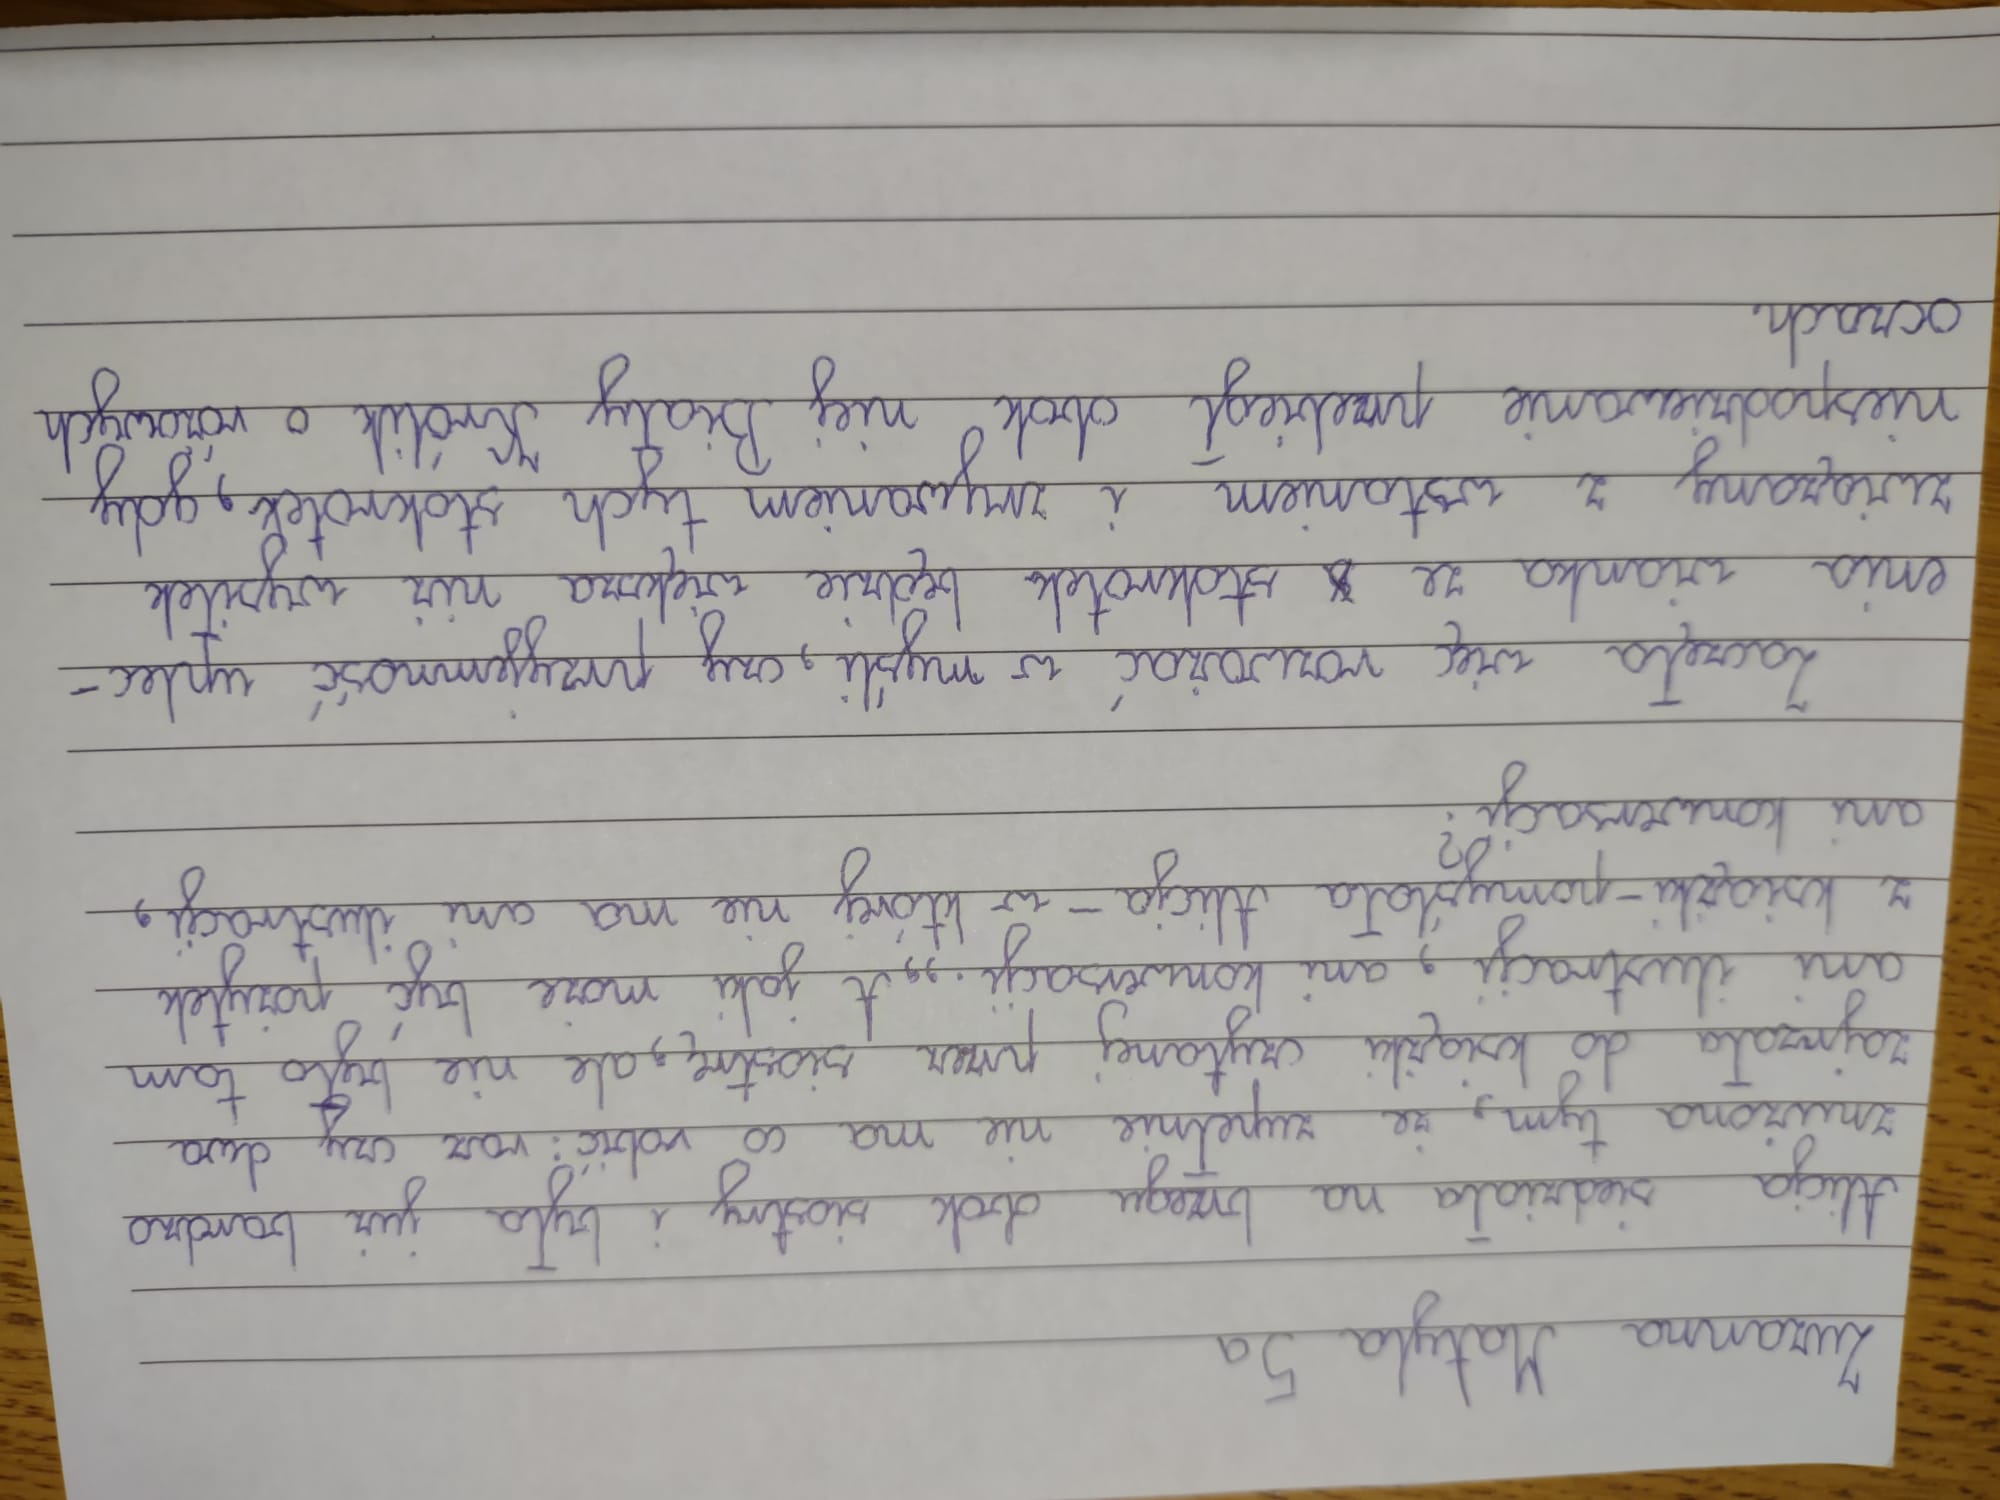 Zuzanna Matyla 5a
Alicja siedziała na brzegu obok siostry i była już bardzo
znużona tym, że zupełnie nie ma co robić: raz czy dwa
zajrzała do książki czytanej przez siostrę, ale nie było tam
ani ilustracji, ani konwersacji. „A jaki może być pożytek
z książki - pomyślała Alicja - w której nie ma ani ilustracji,
ani konwersacji?
Zaczęła więc rozważać w myśli, czy przyjemność uplec-
enia wianka ze stokrotek będzie większa niż wysiłek
związany z wstaniem i zrywaniem tych stokrotek, gdy
niespodziewanie przebiegł obok niej Biały Królik o różowych
oczach.